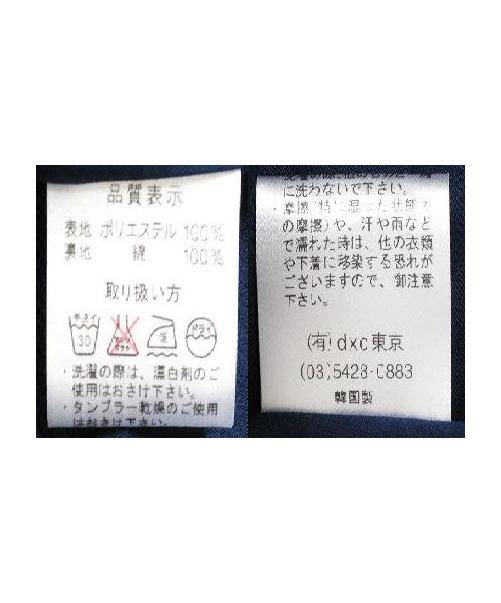 品質表示
表地 ポリエステル 100%
裏地 綿 100%
取り扱い方
30
ドライ
・洗濯の際は、漂白剤のご
使用はおさけ下さい。
・タンブラー乾燥のご使用
に洗わないで下さい。
・摩擦(特に湿った状態で
の摩擦)や、汗や雨など
で濡れた時は、他の衣類
や下着に移染する恐れが
ございますので、御注意
下さい。
(有) dxc東京
(03)5428-0883
韓国製